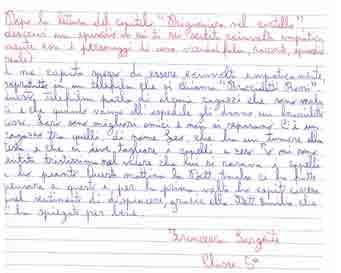 Dopo la lettura del capitolo "Prigioniero nel castello"
descrivi un episodio in cui ti sei sentito coinvolto empatica
mente con i personaggi di una vicenda (film, racconto, episodio
reale)
È me capitato spesso di essere coinvolta empaticamente,
soprattutto in un telefilm che si chiama "Braccialetti Rossi"
questo telefilm parla di alcuni ragazzi che sono mala
ti e che quando vanno all'ospedale gli danno un braccialetto
rosso, loro sono migliori amici e non si separano. C'è un
ragazzo tra quelli di nome Leo che ha un tumore alla
testa e che si deve tagliare i capelli a zero. Io mi sono
sentita tristissima nel vedere che lui si rasava i capelli
e ho pianto. Questa mattina la Dott. Emilia ci ha fatto
pensare a questo e per la prima volta ho capito cos'era
quel sentimento di dispiacere, grazie alla Dott. Emilia che
ce l'ha spiegato per bene.
Francesca
Classe 5ª